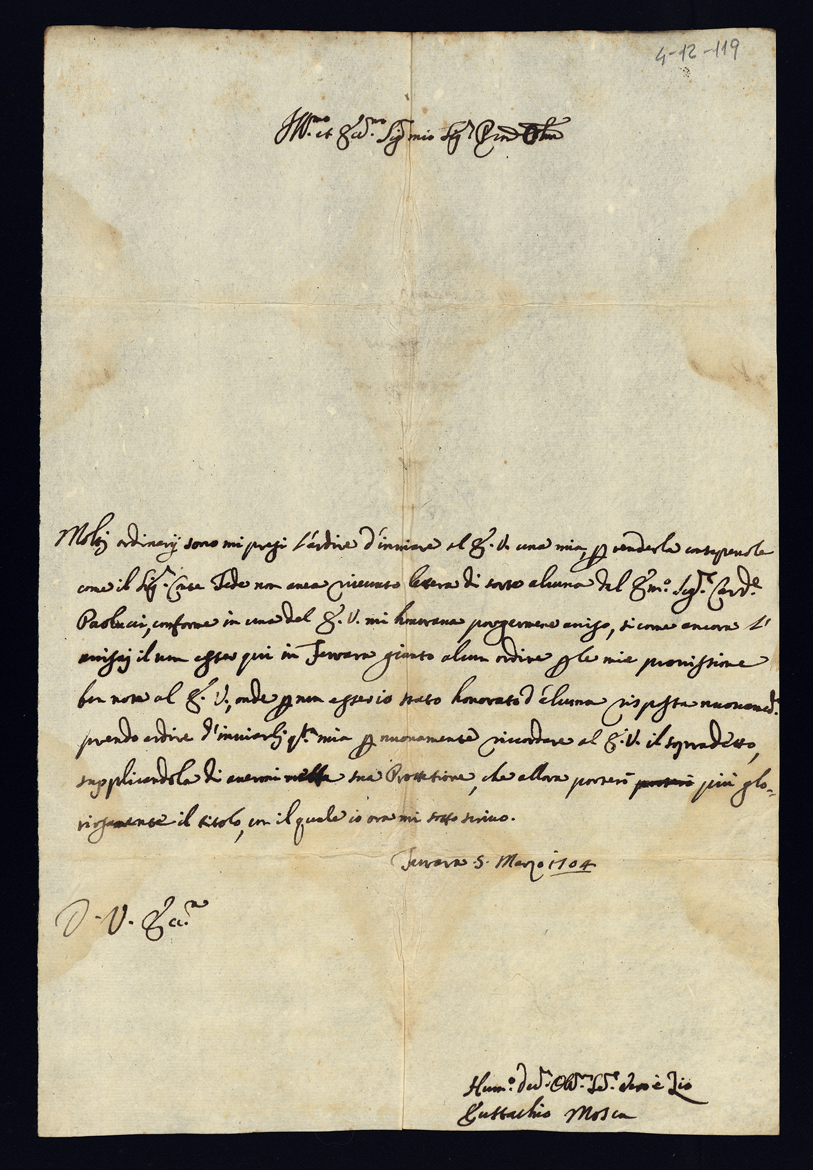 4-12-119
Ill.mo et Ecc.mo Sig.r mio Sig.r P.ron
Molti ordinarij sono mi presi l'ardire d'inviare al E. V. una mia, per renderla consapevole
come il Sig.r Conte Fede non avea ricevuto lettera di sorte alcuna del Em.o Sig.r Card.e
Paolucci, conforme in una del E. V. mi honorava porgermene aviso, si come ancora l'
avisaj il non esser qui in Ferrara gionto alcun ordine per le mie provissione
ben note al E. V., onde per non esser io stato honorato d'alcuna risposta nuovamed.e
prendo ardire d'inviarlj q.ta mia per nuovamente ricordare al E. V. il sopradetto,
supplicandola di avermi nella sua Protetione, che allora porterò porterò più glo-
riosamente il titolo, con il quale io ora mi sotto scrivo.
Ferrara 5. Marzo 1704
D. V. Ecc.a
Hum.o Dev.o Obl.o Se.r vero è Zio
Eustachio Mosca